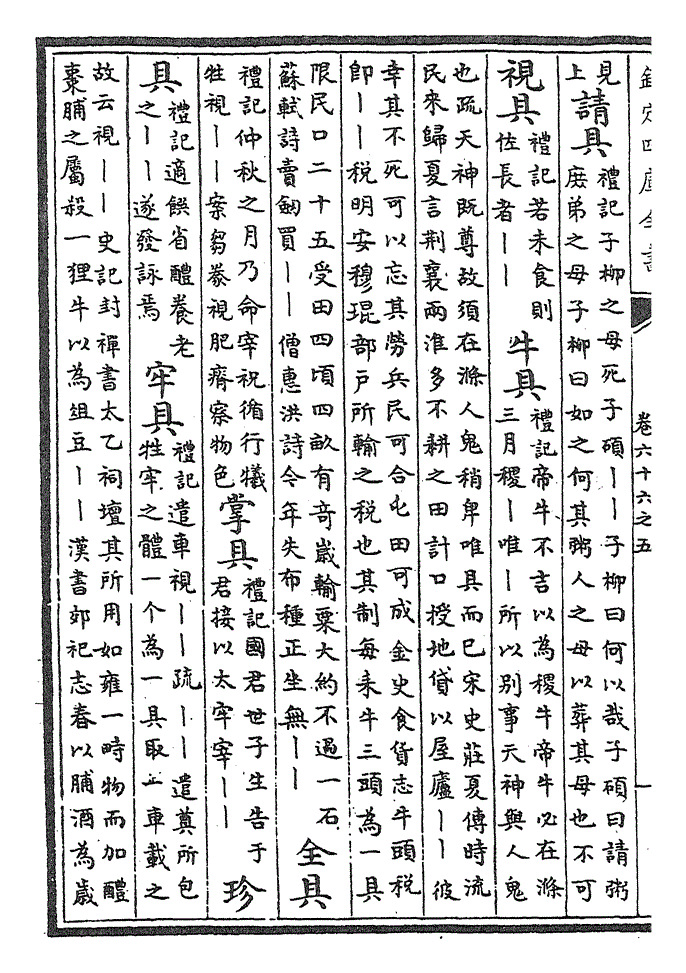 欽定四庫全書
卷六十六之五
一
見
上
請具
禮記子柳之母死子碩——子柳曰何以哉子碩曰請粥
庶弟之母子柳曰如之何其粥人之母以葬其母也不可
視具
禮記若未食則
佐長者——
牛具
禮記帝牛不吉以為稷牛帝牛必在滌
三月稷—唯—所以別事天神與人鬼
也疏天神既尊故須在滌人鬼稍卑唯具而已宋史莊夏傳時流
民來歸夏言荆襄兩淮多不耕之田計口授地貸以屋廬——彼
幸其不死可以忘其勞兵民可合屯田可成 金史食貨志牛頭税
卽——税明安穆琨部戶所輸之税也其制每耒牛三頭為一具
限民口二十五受田四頃四畝有竒歲輸粟大約不過一石
蘇軾詩賣劒買——僧惠洪詩今年失布種正坐無——
全具
禮記仲秋之月乃命宰祝循行犧
牲視——案芻豢視肥瘠察物色
掌具
禮記國君世子生告于
君接以太牢宰——
珍
具
禮記適饌省醴養老
之——遂發詠焉
牢具
禮記遣車視——疏——遣奠所包
牲牢之體一个為一具取一車載之
故云視——史記封禪書太乙祠壇其所用如雍一畤物而加醴
棗脯之屬殺一狸牛以為俎豆——漢書郊祀志春以脯酒為歲